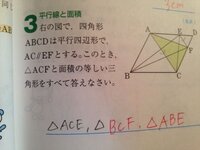 3cm
3 平行線と面積
右の図で，四角形
ABCDは平行四辺形で，
AC//EFとする。このとき，
△ACFと面積の等しい三
角形をすべて答えなさい。
A
D
E
B
F
C
△ACE, △BCF, △ABE